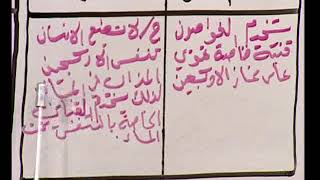 يستخدم الغواصون
قنينة خاصة تحوي
على غاز الاوكسجين
ج/ لا تستطيع الانسان
تنفس الأوكسجين
المذاب في الماء
لذلك يستخدم القناني
الخاصة بالتنفس تحت
الماء